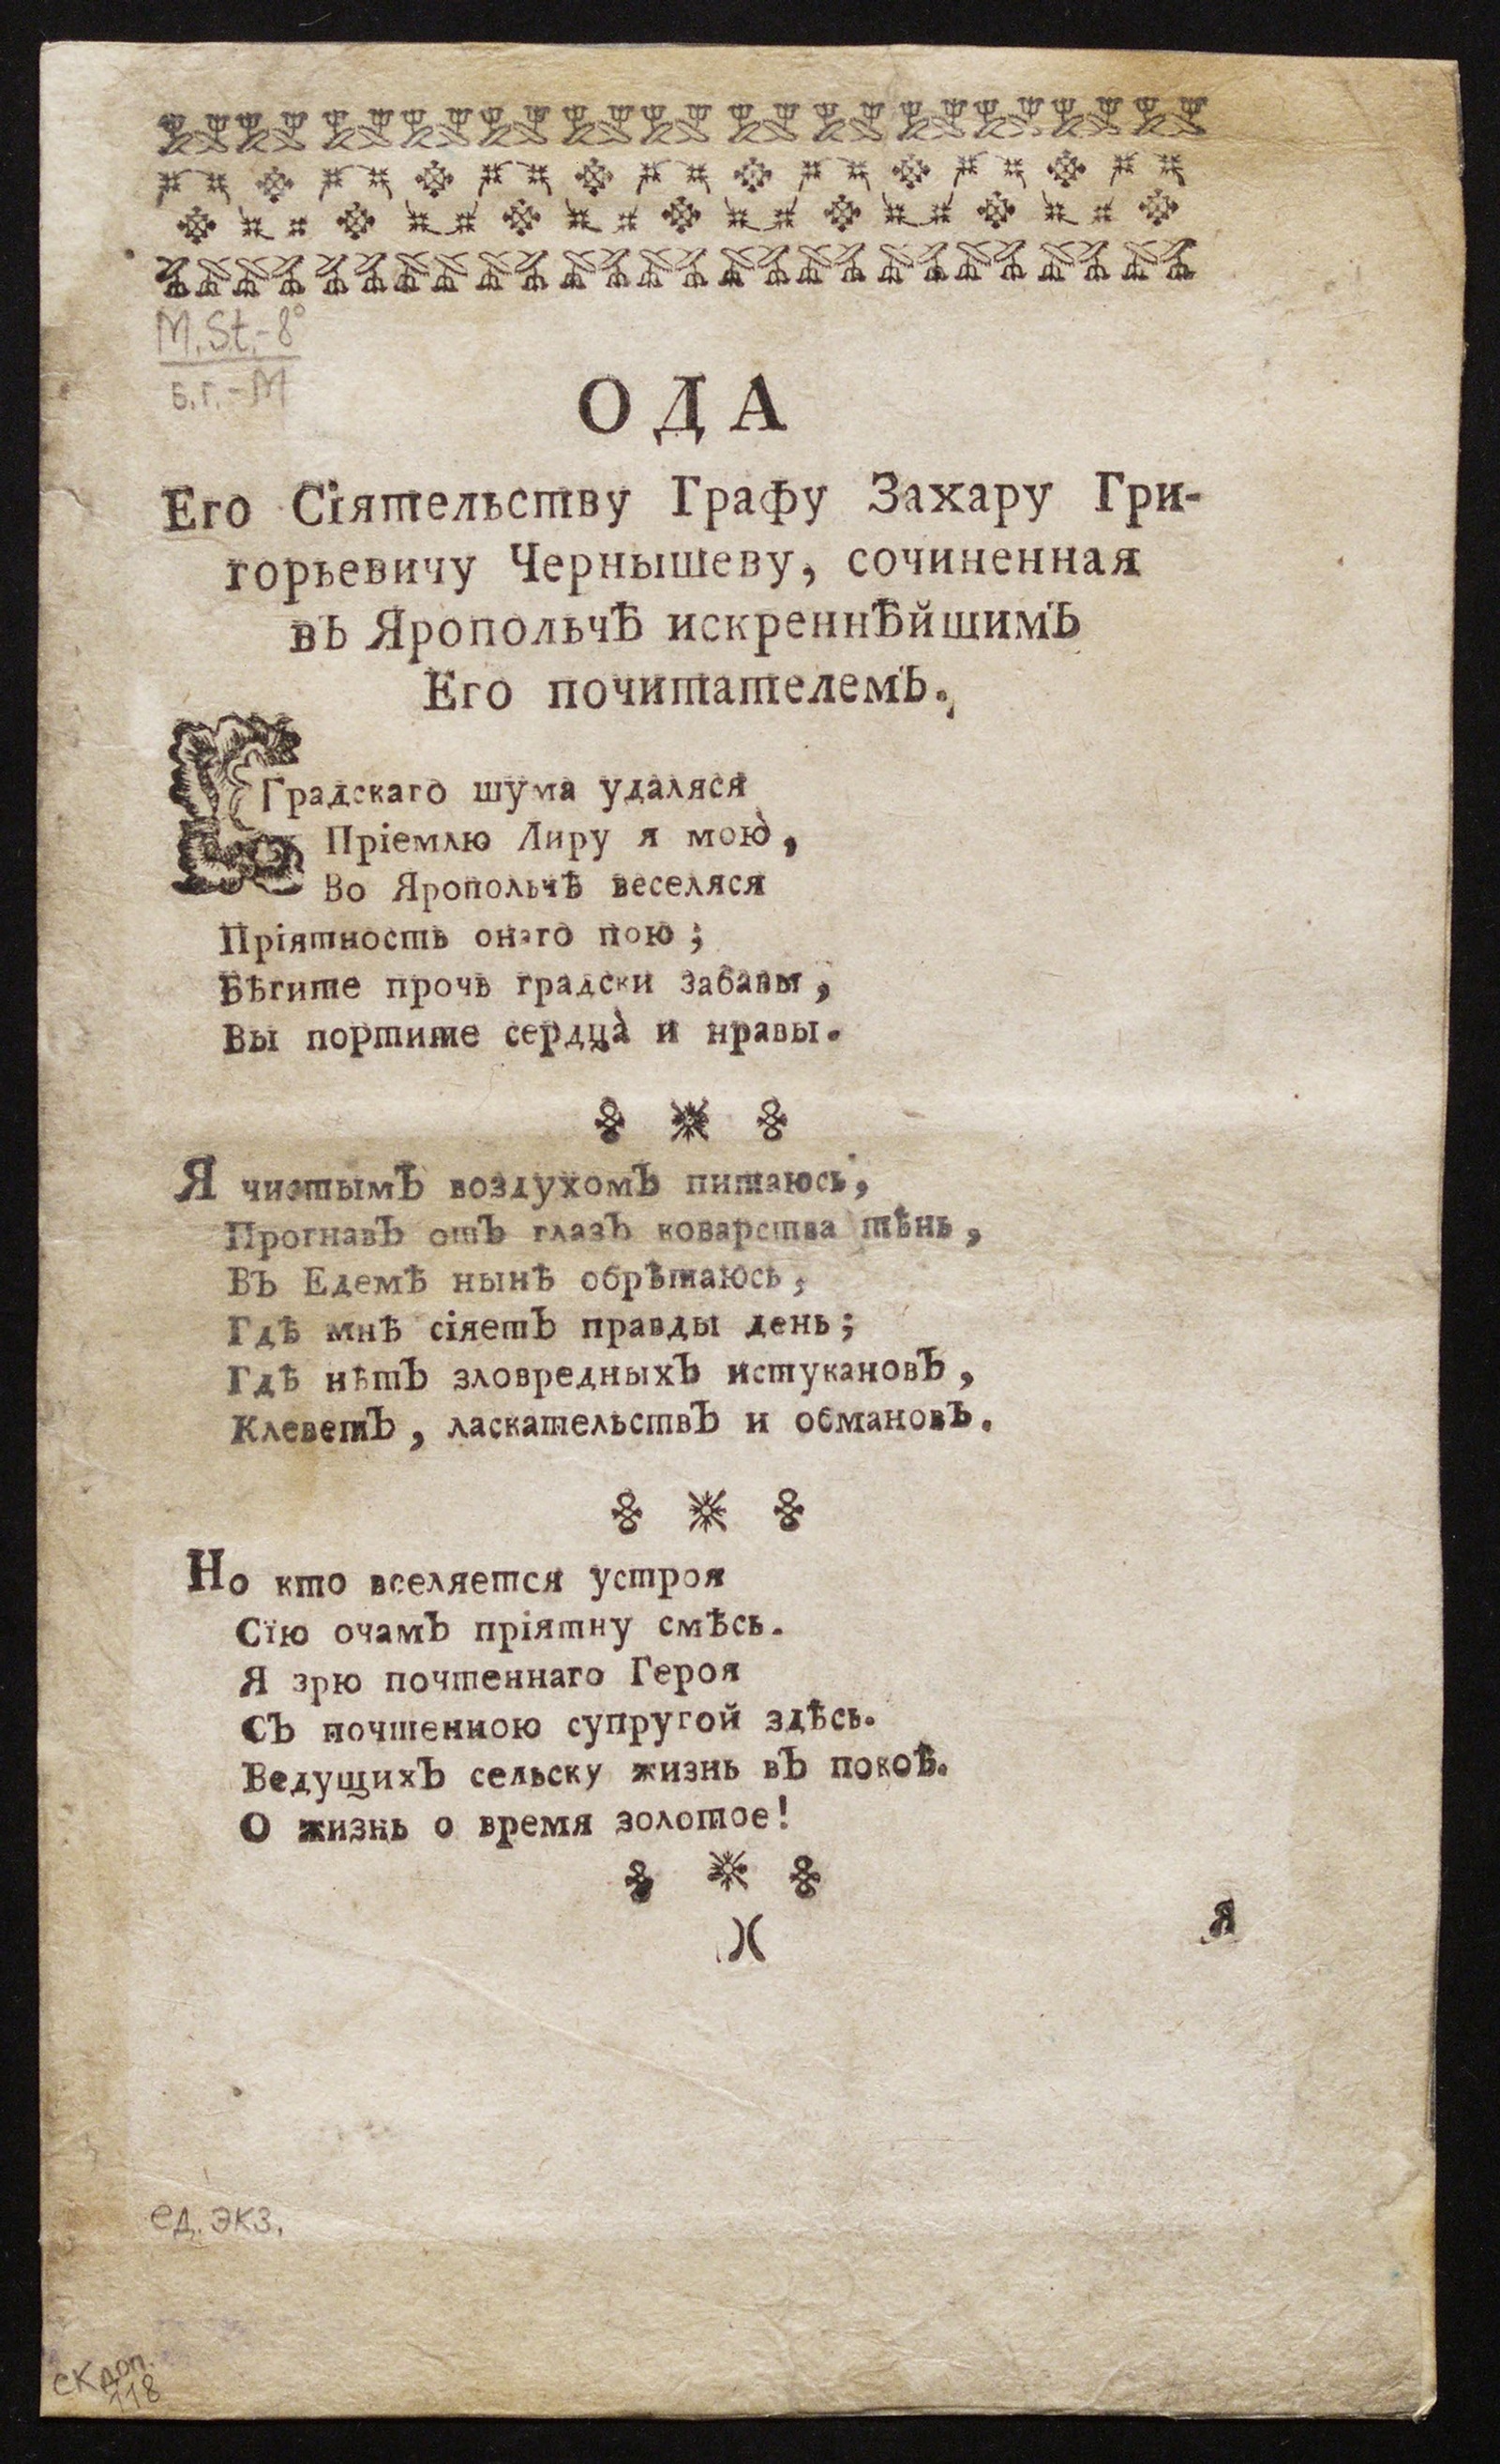 M.St.-8°
б.г.-М
ОДА
Его Сіятельству Графу Захару Гри-
горьевичу Чернышеву, сочиненная
въ Яропольчѣ искреннѣйшимъ
Его почитателемъ.
Градскаго шума удаляся
Пріемлю Лиру я мою̀,
Во Яропольчѣ веселяся
Пріятность онаго пою;
Бѣгите прочь градски забавы,
Вы портите сердца̀ и нравы.
Я чистымъ воздухомъ питаюсь,
Прогнавъ отъ глазъ коварства тѣнь,
Въ Едемѣ нынѣ обрѣтаюсь,
Гдѣ мнѣ сіяетъ правды день;
Гдѣ нѣтъ зловредныхъ истукановъ,
Клеветъ, ласкательствъ и обмановъ.
Но кто вселяется устроя
Сїю очамъ пріятну смѣсь.
Я зрю почтеннаго Героя
Съ почтенною супругой здѣсь.
Ведущихъ сельску жизнь въ покоѣ.
О жизнь о время золотое!
Я
ед. экз.
СК доп.
118